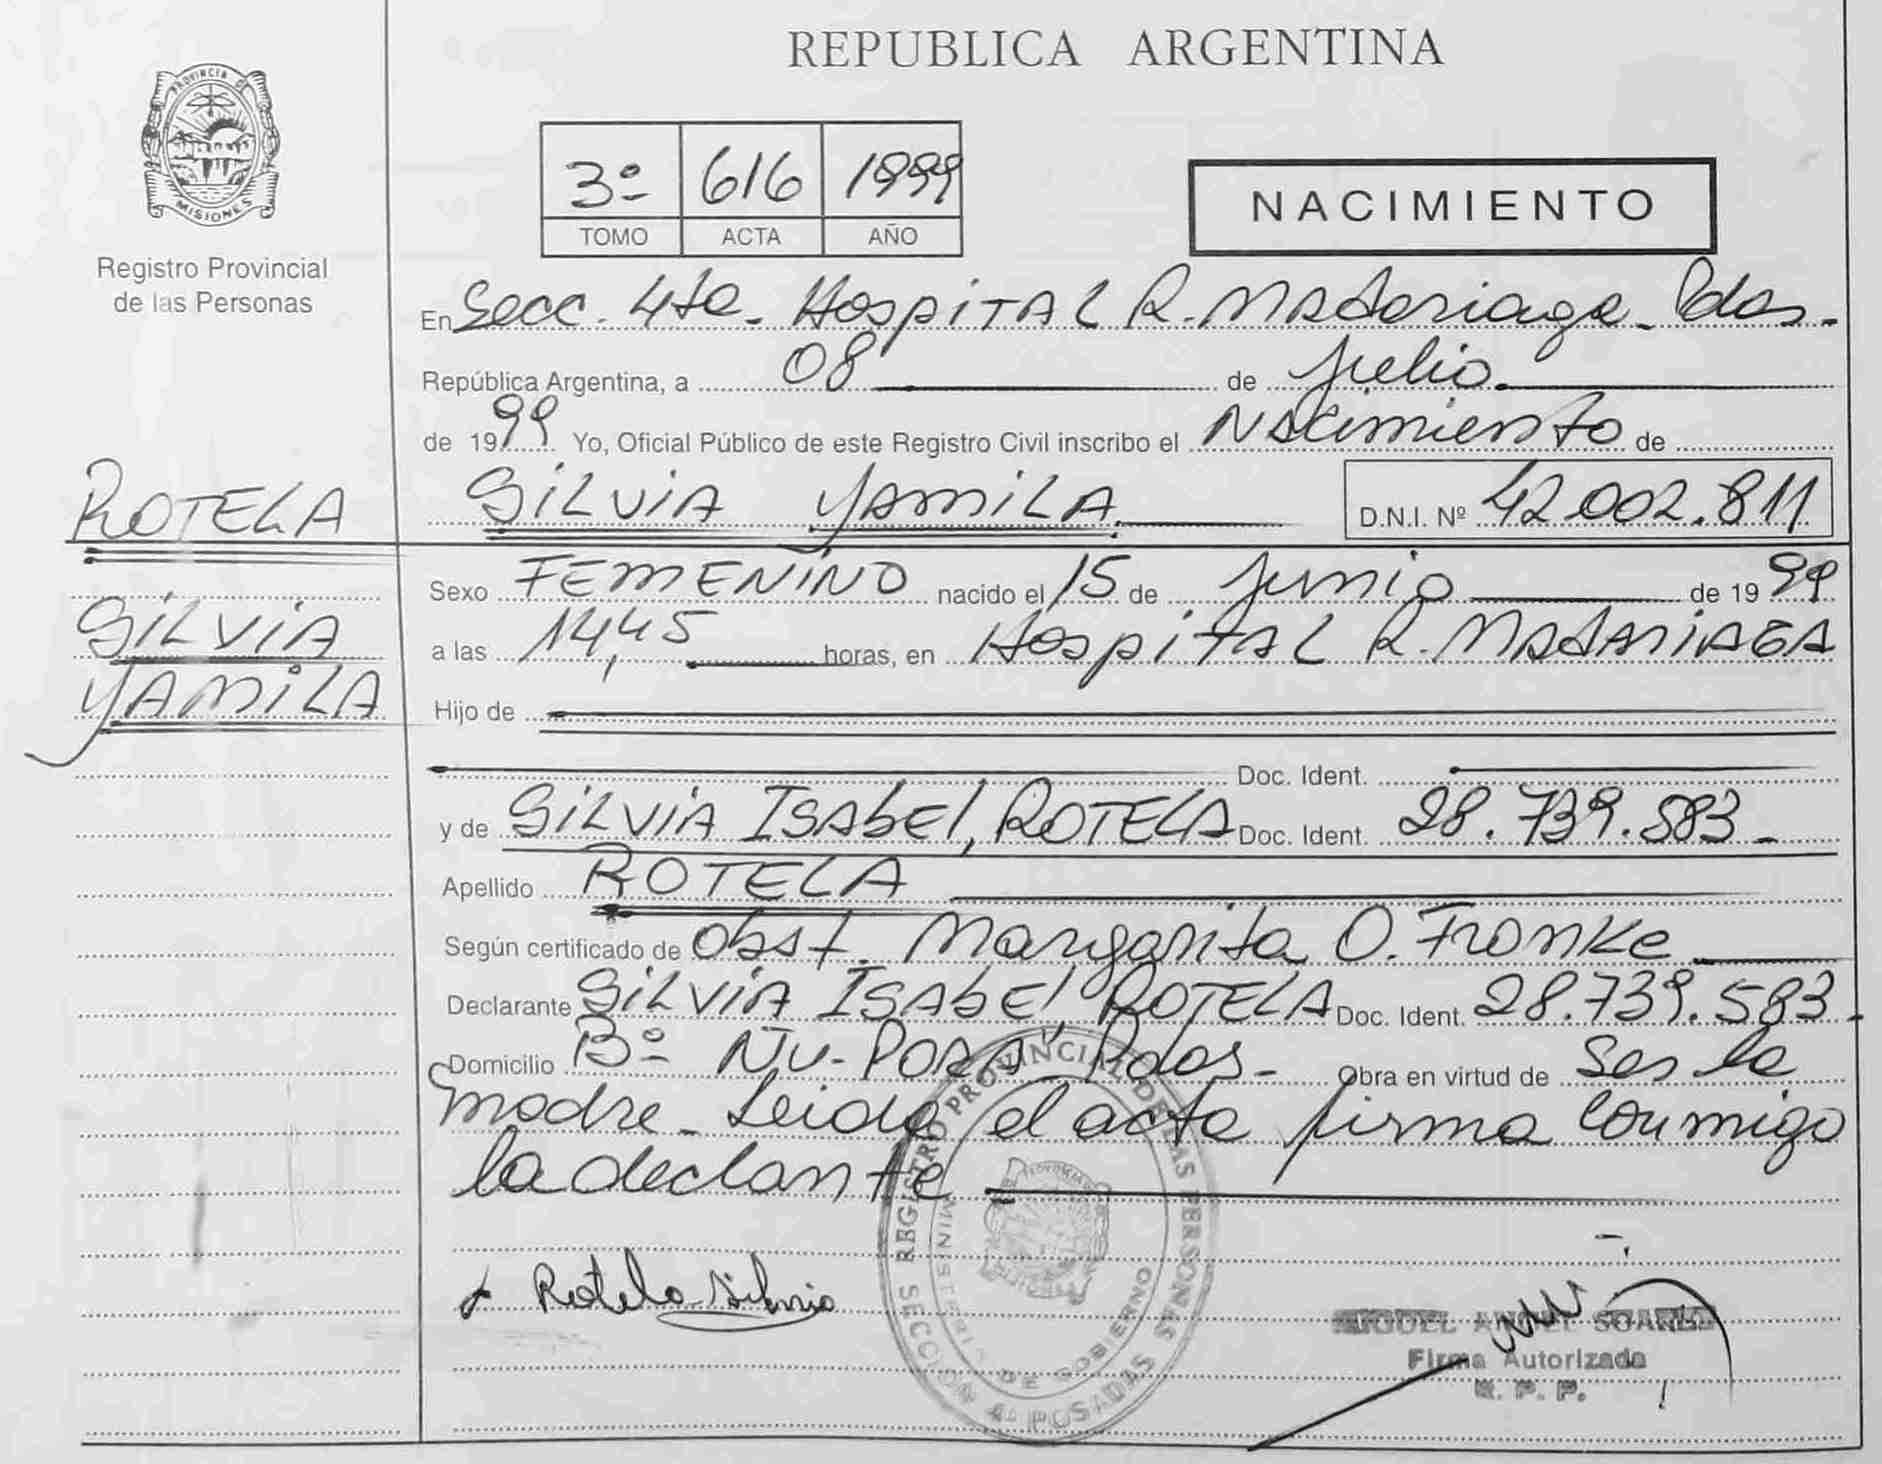 REPUBLICA ARGENTINA
PROVINCIA DE
MISIONES
Registro Provincial
de las Personas
3º 616 1999
TOMO ACTA AÑO
NACIMIENTO
En Secc. 4ta. Hospital R. Madariaga. Pdas.
República Argentina, a 08 de julio
de 1999 Yo, Oficial Público de este Registro Civil inscribo el Nacimiento de
ROTELA
SILVIA YAMILA D.N.I. Nº 42.002.811
SILVIA
YAMILA
Sexo FEMENINO nacido el 15 de junio de 1999
a las 14,45 horas, en Hospital R. MADARIAGA
Hijo de
Doc. Ident.
y de SILVIA ISAbEl, ROTELA Doc. Ident. 28.739.583.
Apellido ROTELA
Según certificado de Obst. Margarita O. Fronke
Declarante SILVIA ISAbEl, ROTELA Doc. Ident. 28.739.583.
Domicilio Bº Ñu-Porá, Pdas. Obra en virtud de Ser la
madre. Leida el acta firma conmigo
la declante
Rotela Silvia
REGISTRO PROVINCIAL DE LAS PERSONAS
MINISTERIO DE GOBIERNO
SECCION 4ª POSADAS
MIGUEL ANGEL SUAREZ
Firma Autorizada
R. P. P.